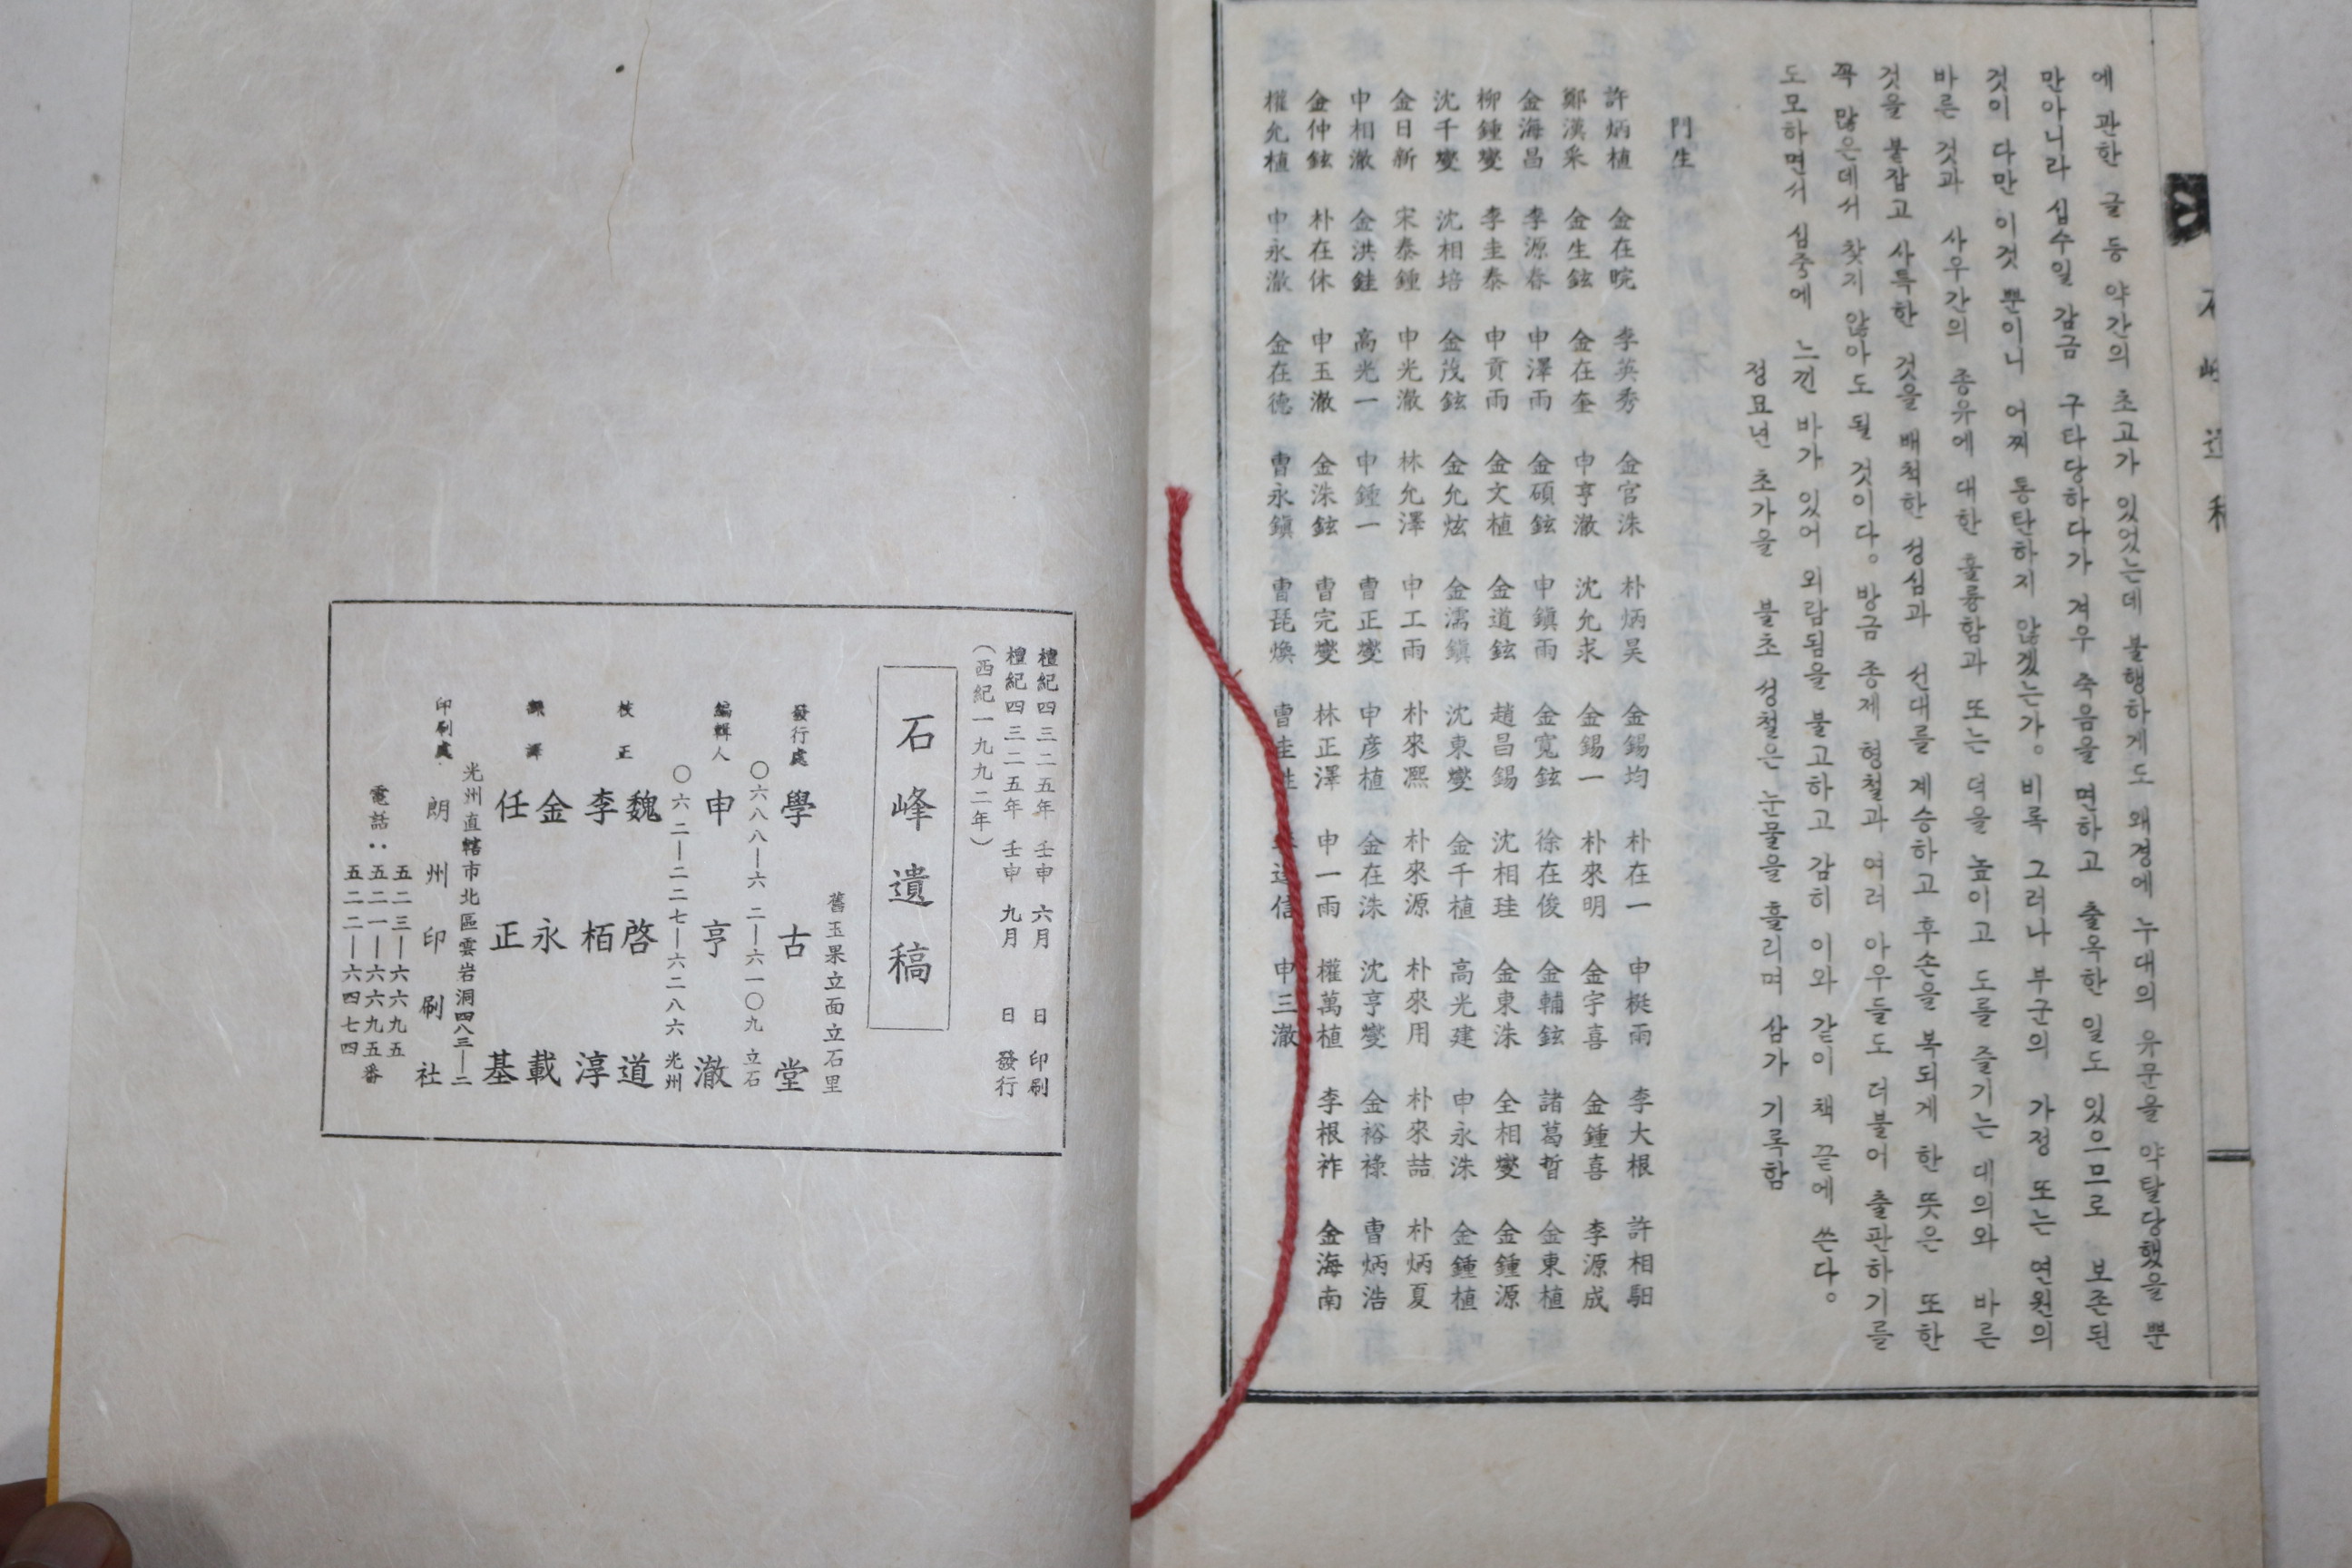 에 관한 글 등 약간의 초고가 있었는데 불행하게도 왜경에 누대의 유문을 약탈당했을 뿐
만아니라 십수일 감금 구타당하다가 겨우 죽음을 면하고 출옥한 일도 있으므로 보존된
것이 다만 이것 뿐이니 어찌 통탄하지 않겠는가。비록 그러나 부군의 가정 또는 연원의
바른 것과 사우간의 종유에 대한 훌륭함과 또는 덕을 높이고 도를 즐기는 대의와 바른
것을 붙잡고 사특한 것을 배척한 성심과 선대를 계승하고 후손을 복되게 한 뜻은 또한
꼭 많은데서 찾지 않아도 될 것이다。방금 종제 형철과 여러 아우들도 더불어 출판하기를
도모하면서 심중에 느낀 바가 있어 외람됨을 불고하고 감히 이와 같이 책 끝에 쓴다。
정묘년 초가을 불초 성철은 눈물을 흘리며 삼가 기록함
門生
許炳植 金在晥 李英秀 金官洙 朴炳昊 金錫均 朴在一 申梃雨 李大根 許相馹
鄭漢采 金生鉉 金在奎 申亨澈 沈允求 金錫一 朴來明 金宇喜 金鍾喜 李源成
金海昌 李源春 申澤雨 金碩鉉 申鎭雨 金寬鉉 徐在俊 金輔鉉 諸葛晳 金東植
柳鍾燮 李圭泰 申貢雨 金文植 金道鉉 趙昌錫 沈相珪 金東洙 全相燮 金鍾源
沈千燮 沈相培 金茂鉉 金允炫 金濡鎭 沈東燮 金千植 高光建 申永洙 金鍾植
金日新 宋泰鍾 申光澈 林允澤 申工雨 朴來凞 朴來源 朴來用 朴來喆 朴炳夏
申相澈 金洪銈 高光一 申鍾一 曺正燮 申彦植 金在洙 沈亨燮 金裕祿 曺炳浩
金仲鉉 朴在休 申玉澈 金洙鉉 曺完燮 林正澤 申一雨 權萬植 李根祚 金海南
權允植 申永澈 金在德 曺永鎭 曺琵煥 曺 信 申三澈
檀紀四三二五年 壬申 六月 日 印刷
檀紀四三二五年 壬申 九月 日 發行
(西紀一九九二年)
石峰遺稿
舊玉果立面立石里
發行處 學古堂
〇六八八—六二—六一〇九 立石
編輯人 申亨澈
〇六二—二二七—六二八六 光州
校正 魏啓道
李栢淳
飜譯 金永載
任正基
光州直轄市北區雲岩洞四八三—二
印刷處 朗州印刷社
五二三—六六九五
電話：五二一—六六九五番
五二二—六四七四